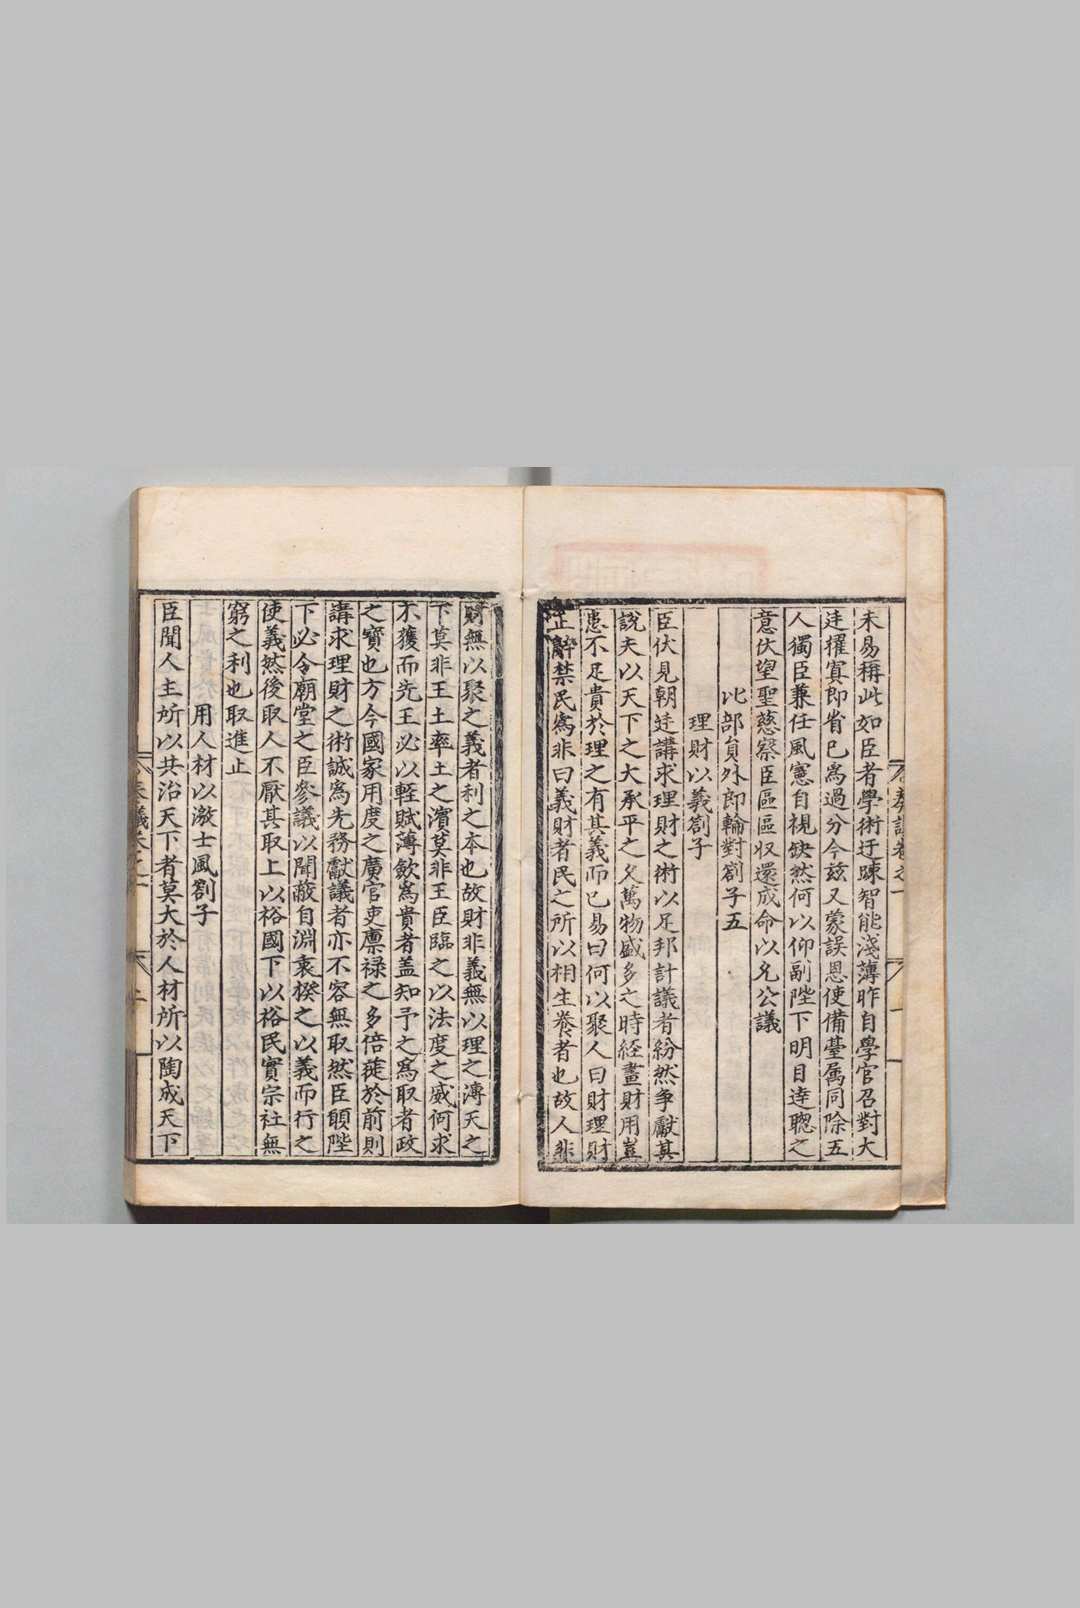 未易稱此如臣者學術迂踈智能淺薄昨自學官召對大
廷擢寘郎省已爲過分今茲又蒙誤恩使備臺属同除五
人獨臣兼任風憲自視缺然何以仰副陛下明目達聰之
意伏望聖慈察臣區區収還成命以允公議
比部員外郎輪對劄子五
理財以義劄子
臣伏見朝廷講求理財之術以足邦計議者紛然争獻其
說夫以天下之大承平之久萬物盛多之時経畫財用豈
患不足貴於理之有其義而已易曰何以聚人曰財理財
正辭禁民爲非曰義財者民之所以相生養者也故人非
財無以聚之義者利之本也故財非義無以理之溥天之
下莫非王土率土之濱莫非王臣臨之以法度之威何求
不獲而先王必以輕賦薄斂爲貴者盖知予之爲取者政
之寳也方今國家用度之廣官吏廪禄之多倍蓰於前則
講求理財之術誠爲先務獻議者亦不容無取然臣願陛
下必令廟堂之臣參議以聞蔽自淵衷揆之以義而行之
使義然後取人不厭其取上以裕國下以裕民實宗社無
窮之利也取進止
用人材以激士風劄子
臣聞人主所以共治天下者莫大於人材所以陶成天下
奏議卷之一
二